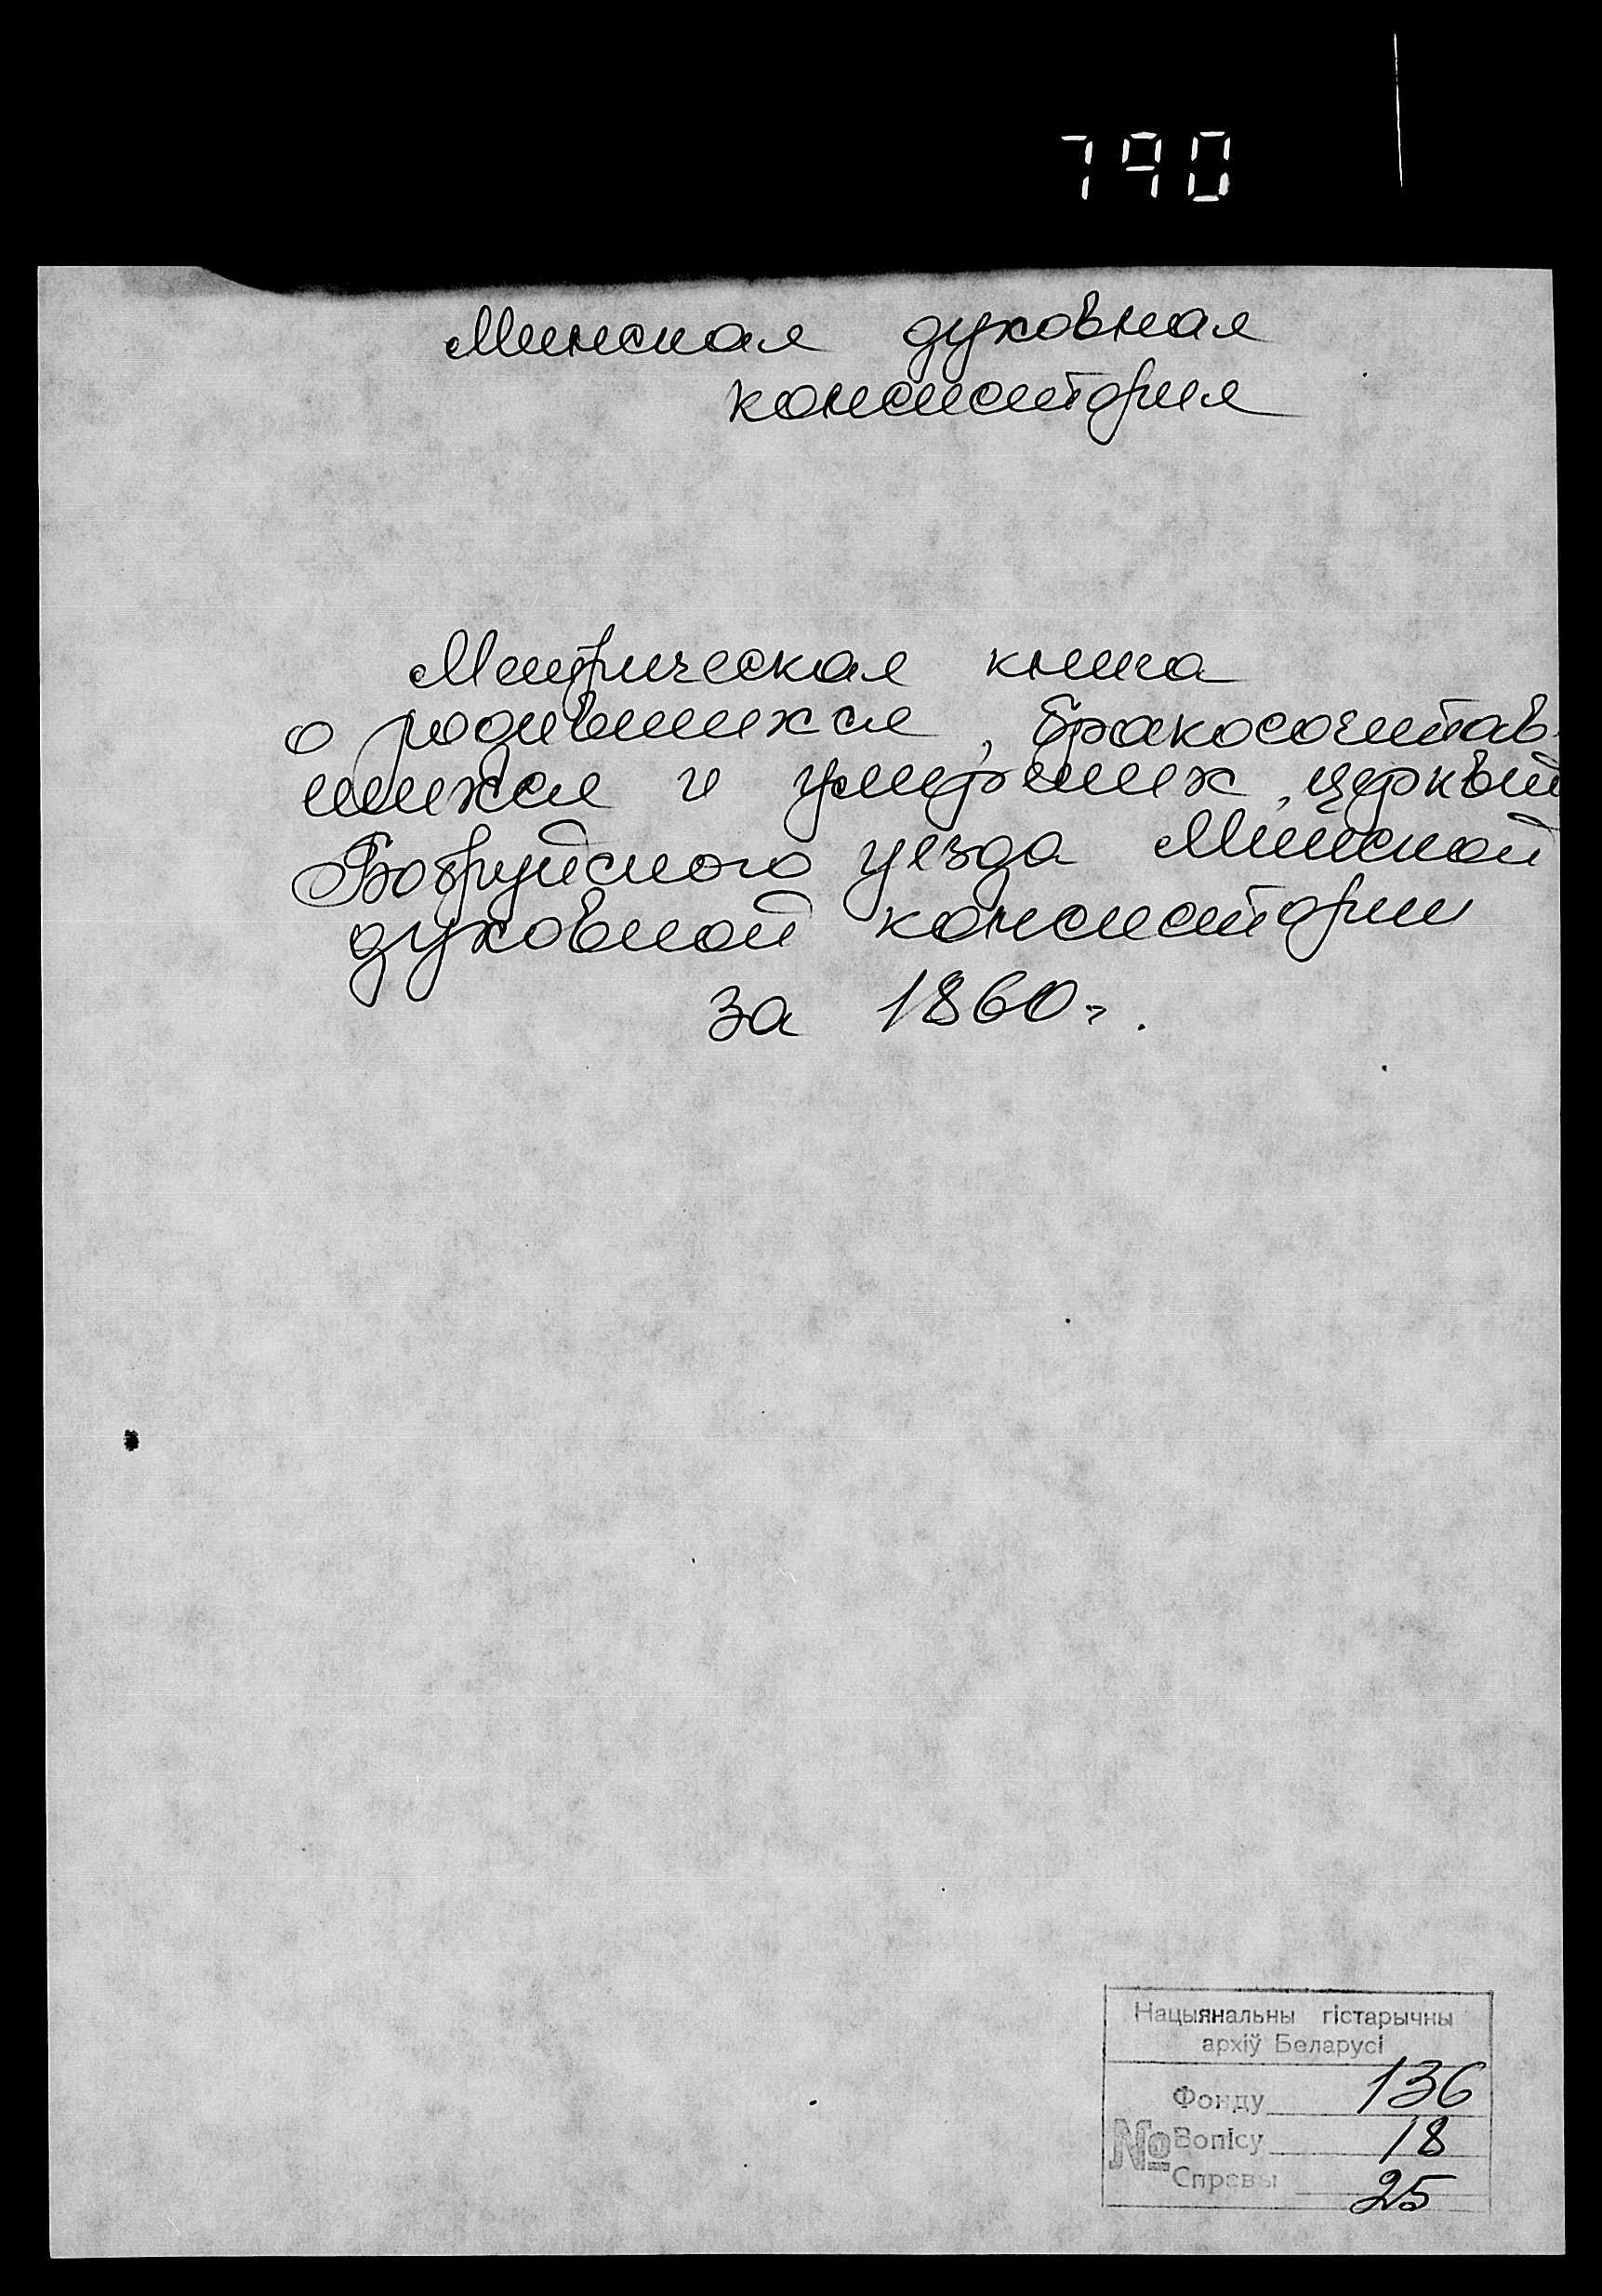 790
Минская духовная
консистория
Метрическая книга
о родившихся, бракосочетав-
шихся и умерших, церквей
Бобруйского уезда Минской
духовной консистории
за 1860 г.
Нацыянальны гістарычны
архіў Беларусі
Фонду 136
№ Вопісу 18
Справы 25